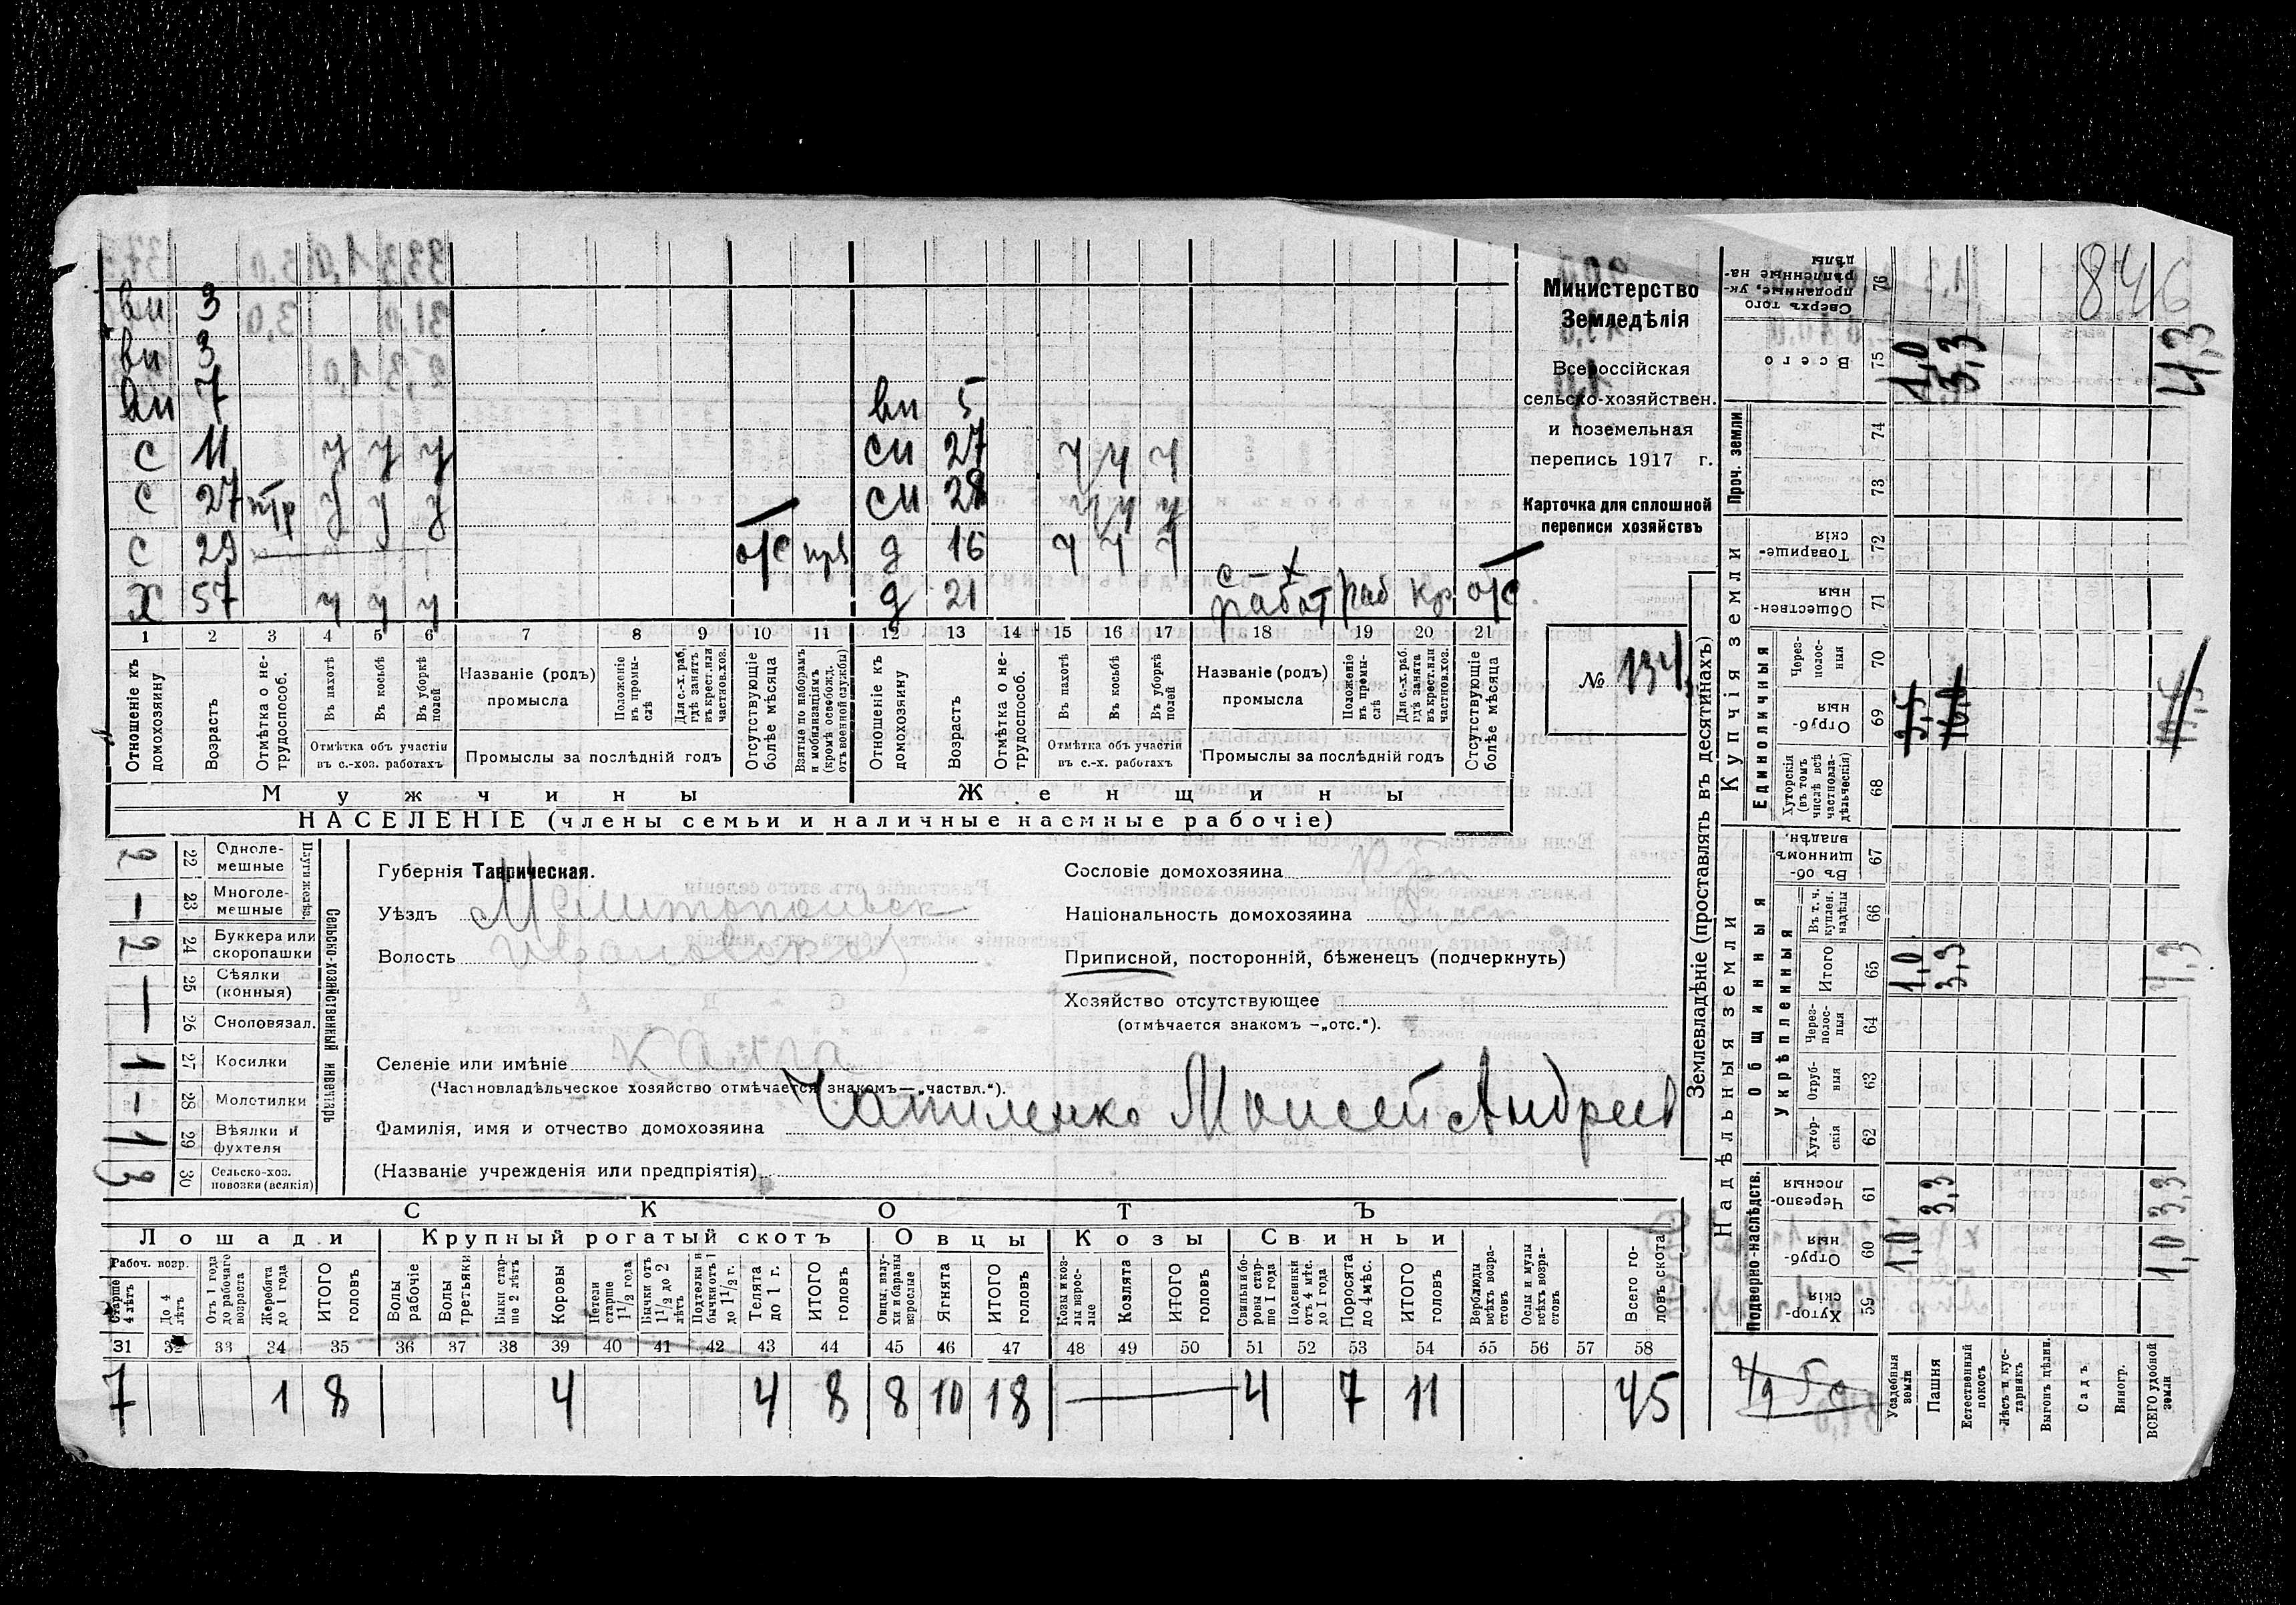 вн 3
вн 3
вн 7 вн 5
с 11 у у у сн 27 у у у
с 27 птр у у у сн 28 у у у
с 29 о/с прв д 16 у у у
х 57 у у у д 21 работ раб кр о/с
1 2 3 4 5 6 7 8 9 10 11 12 13 14 15 16 17 18 19 20 21
Отношеніе къ домохозяину
Возрастъ
Отмѣтка о нетрудоспособ.
Въ пахотѣ
Въ косьбѣ
Въ уборкѣ полей
Отмѣтка объ участіи въ с.-хоз. работахъ
Названіе (родъ) промысла
Положеніе въ промыслѣ
Для с.-х. раб. гдѣ занятъ въ крест. или частнов. хоз.
Промыслы за послѣдній годъ
Отсутствующіе болѣе мѣсяца
Взятые по наборамъ и мобилизаціямъ (кромѣ освобожд. отъ военной службы)
Отношеніе къ домохозяину
Возрастъ
Отмѣтка о нетрудоспособ.
Въ пахотѣ
Въ косьбѣ
Въ уборкѣ полей
Отмѣтка объ участіи въ с.-х. работахъ
Названіе (родъ) промысла
Положеніе въ промыслѣ
Для с.-х. раб. гдѣ занята въ крест. или частнов. хоз.
Промыслы за послѣдній годъ
Отсутствующіе болѣе мѣсяца
Мужчины Женщины
НАСЕЛЕНІЕ (члены семьи и наличные наемные рабочіе)
Министерство
Земледѣлія
Всероссійская
сельско-хозяйствен.
и поземельная
перепись 1917 г.
Карточка для сплошной
переписи хозяйствъ
№ 134
2 22 Однолемешные
— 23 Многолемешные
2 24 Буккера или скоропашки
— 25 Сѣялки (конныя)
— 26 Сноповязал.
1 27 Косилки
— 28 Молотилки
1 29 Вѣялки и фухтеля
3 30 Сельско-хоз. повозки (всякія)
Плуги желѣз.
Сельско-хозяйственный инвентарь
Губернія Таврическая.
Уѣздъ Мелитопольск
Волость Ивановская
Селеніе или имѣніе Калга
(Частновладѣльческое хозяйство отмѣчается знакомъ—„частвл.“).
Фамилія, имя и отчество домохозяина Чапиленко Моисей Андреев
(Названіе учрежденія или предпріятія)
Сословіе домохозяина Кр
Національность домохозяина
Приписной, посторонній, бѣженецъ (подчеркнуть)
Хозяйство отсутствующее
(отмѣчается знакомъ —„отс.“).
СКОТЪ
Лошади Крупный рогатый скотъ Овцы Козы Свиньи
Рабоч. возр.
Старше 4 лѣтъ
До 4 лѣтъ
Отъ 1 года до рабочаго возраста
Жеребята до 1 года
ИТОГО головъ
Волы рабочіе
Волы третьяки
Быки старше 2 лѣтъ
Коровы
Нетели старше 1 1/2 года
Бычки отъ 1 1/2 до 2 лѣтъ
Подтелки и бычки отъ 1 до 1 1/2 г.
Телята до 1 г.
ИТОГО головъ
Овцы, валухи и бараны взрослые
Ягнята
ИТОГО головъ
Козы и козлы взрослые
Козлята
ИТОГО головъ
Свиньи и боровы старше 1 года
Подсвинки отъ 4 мѣс. до 1 года
Поросята до 4 мѣс.
ИТОГО головъ
Верблюды всѣхъ возрастовъ
Ослы и мулы всѣхъ возрастовъ
Всего головъ скота
31 32 33 34 35 36 37 38 39 40 41 42 43 44 45 46 47 48 49 50 51 52 53 54 55 56 57 58
7 1 8 4 4 8 8 10 18 — 4 7 11 45
Землевладѣніе (проставлять въ десятинахъ)
Надѣльныя земли Купчія земли Проч. земли
Подворно-наслѣдств.
Общинныя
Укрѣпленныя
Единоличныя
846
Сверхъ того проданные, укрѣпленные надѣлы 76
Всего 75 1,0 3,3 4,3
74
73
Товарищескія 72
Общественныя 71
Черезполосныя 70
Отрубныя 69 3,5 16,0 19,5
Хуторскія (въ томъ числѣ всѣ частновладѣльческія) 68
Въ общинномъ владѣн. 67
Въ т. ч. куплен. надѣлы 66
Итого 65 1,0 3,3 4,3
Черезполосныя 64
Отрубныя 63
Хуторскія 62
Черезполосныя 61 3,3 3,3
Отрубныя 60 1,0 1,0
Хуторскія 59
Усадебныя земли
Пашня
Естественный покосъ
Лѣсъ и кустарникъ
Выгонъ цѣлин.
Садъ
Виногр.
ВСЕГО удобной земли